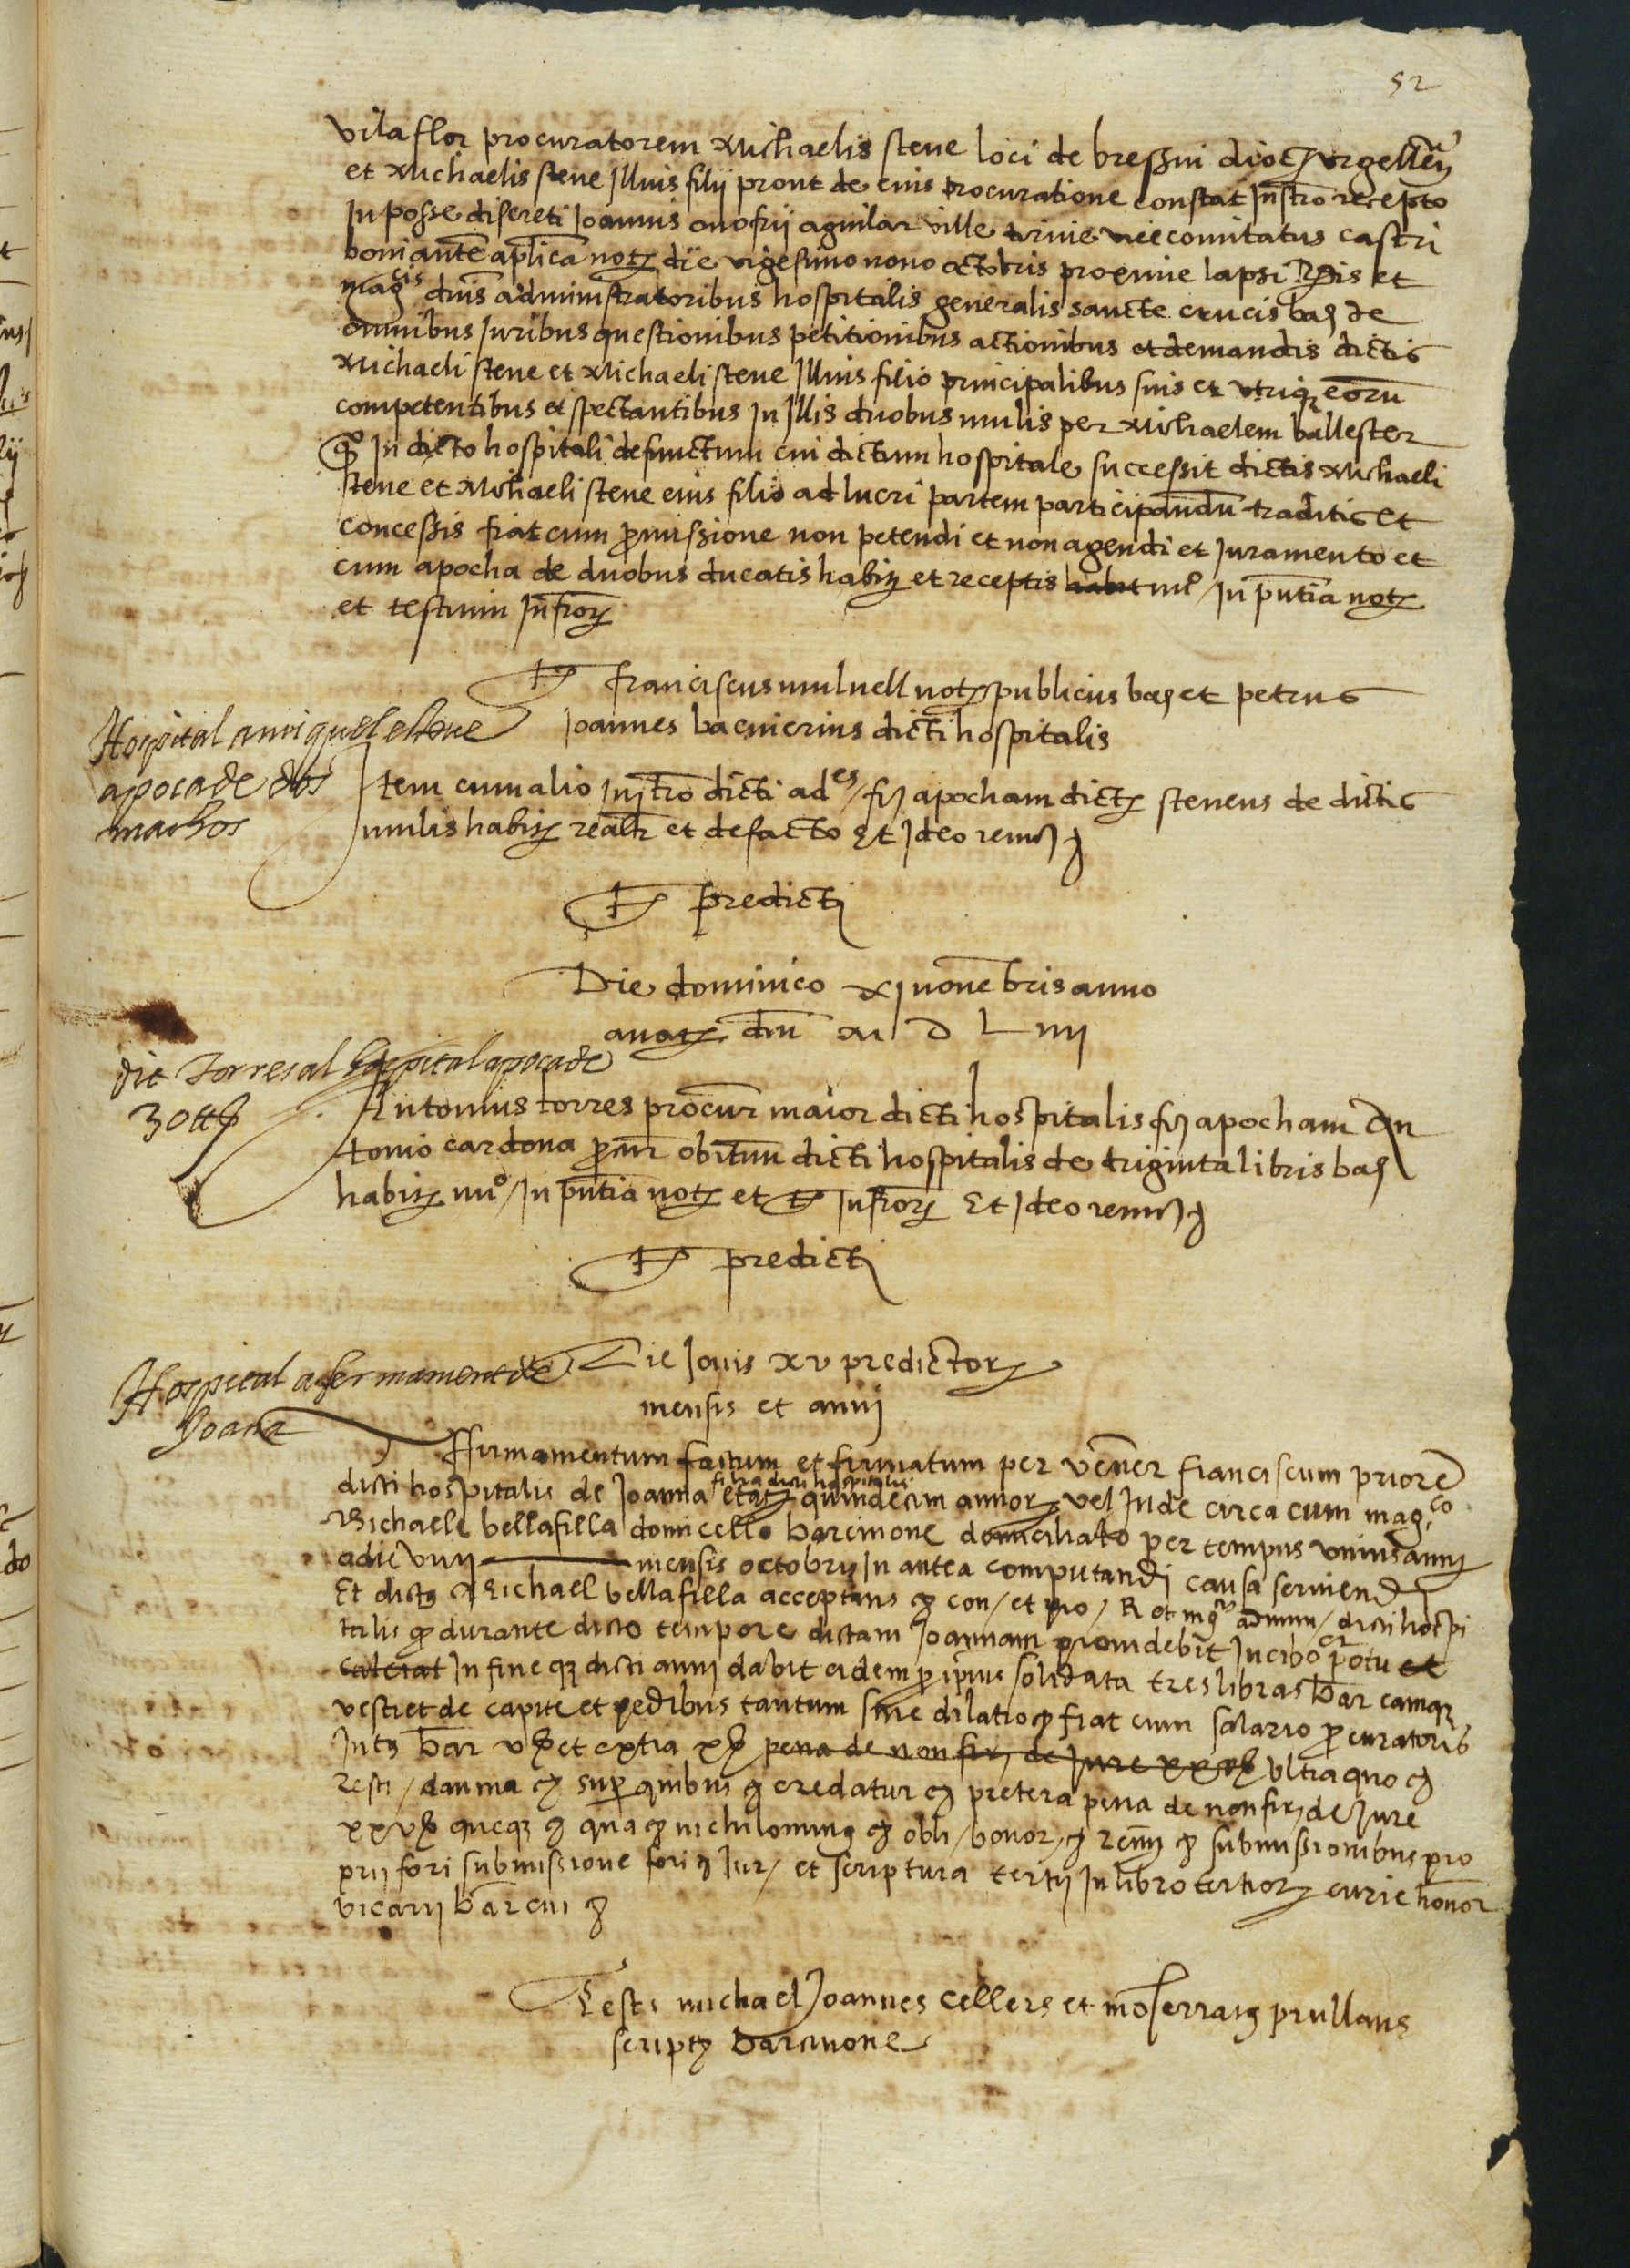 52
vilaflor procuratorem Michaelis steve loci de bressui dioc urgellen
et Michaelis steve Illius filii prout de eius procuratione constat Instro recepto
In posse discreti Ioannis onofrii aguilar ville vicecomitatus castri
boni autte aplica not die vigesimo nono octobris proxime lapsi Rdis et
magcis dnis administratoribus hospitalis generalis sancte crucis bar de
omnibus Iuribus questionibus petitionibus actionibus et demandis dictis
Michaeli steve et Michaeli steve Illius filio principalibus suis et utriq eoru
competentibus et spectantibus In Illis duobus mulis per Michaelem ballester
qo In dicto hospitali defunctum cui dictum hospitale successit dictis Michaeli
steve et Michaeli steve eius filio ad lucri partem participandu traditis et
concessis fiat cum promissione non petendi et non agendi et Iuramento et
cum apocha de duobus ducatis habitis et receptis habit nuo / In pntia not
et testium Infror
T franciscus mulnell not publicus bar et petrus
Ioannes bacinerius dicti hospitalis
Hospital a miquel esteve
apoca de dos
machos
Item cum alio Instro dicti ades / fir apocham dict steveus de dictis
mulis habitis realr et de facto Et Ideo remus
T predicti
Die dominico xj novebris anno
a nat dni M D L iiij
dit Torres al hospital apoca de
30 ll
Antonius torres procur maior dicti hospitalis fir apocham An
tonio cardona procur obituu dicti hospitalis de triginta libris bar
habitis nuo / In pntia not et T Infror Et Ideo remus
T predicti
Die Iovis xv predictor
mensis et anni
Hospital afermament de
Joana
Ffirmamentum factum et firmatum per vener franciscum priore
filia dicti hospitalis
dicti hospitalis de Ioanna etatis quindecim annor vel Inde circa cum magco
Michaele bellafilla domicello barcinone domiciliato per tempus unius anni
a die viiij mensis octobris In antea computandi causa serviendi
Et dictus Michael bellafilla acceptans con / et pro / R et mgcis admin / dicti hospi
talis q durante dicto tempore dictam Ioannam providebit In cibo et potu et
calciat In fine q dicti anni dabit eidem pro ipius solidata tres libras bar eamq
vestiet de capite et pedibus tantum sine dilatio fiat cum salario procuratoris
Intus bar v ß et extra x ß pena de non fir de Iure xxv ß ultra quo
resti / damna sup quibus credatur pretera pena de non fir de Iure
xxv ß queq qua nichilominus obli / bonor renu submissionibus pro
prii fori submissione fori Iur / et scriptura tertii In libro tertior curie honor
vicarii barcin
Testi michael Joannes cellers et moserratus prullans
script barcinone